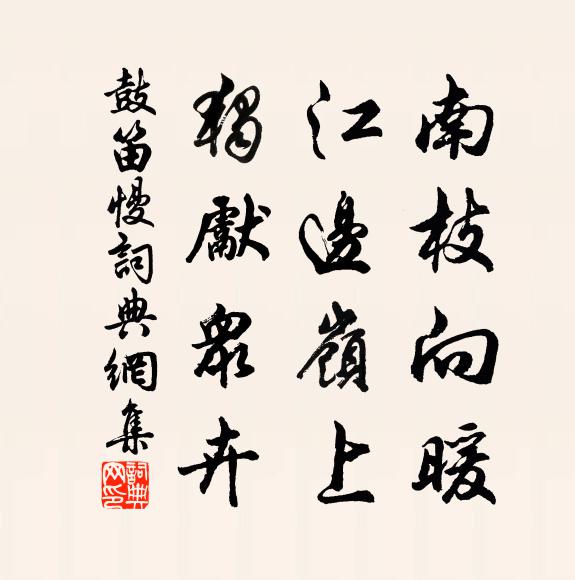 南枝向暖
江邊嶺上
獨獻眾卉
鼓笛慢詞典網集
詞典网印